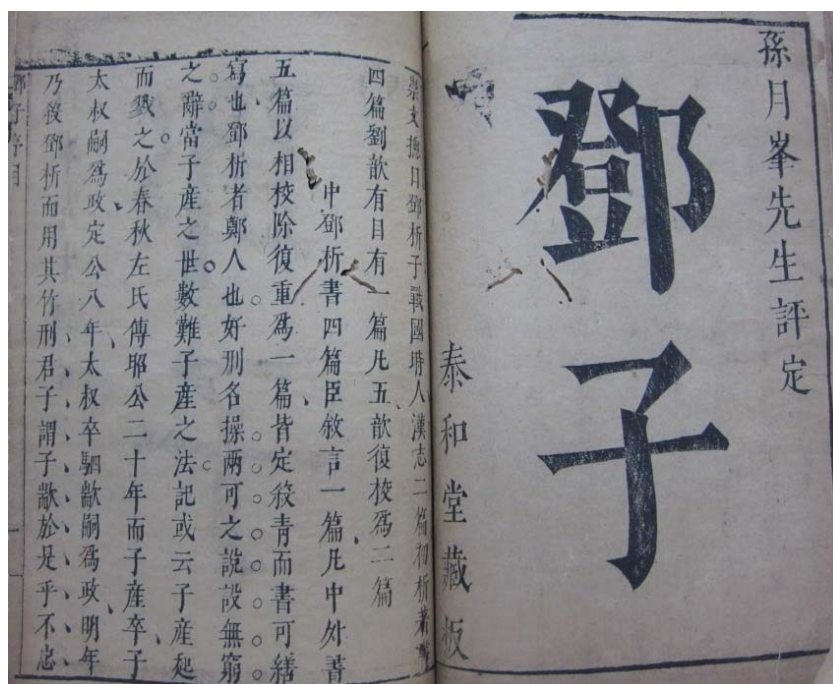 孫月峯先生評定
鄧子
泰和堂藏板
崇文總目鄧析子戰國時人漢志二篇初析著書
四篇劉歆有目有一篇凡五歆復校爲二篇
中鄧析書四篇臣敘言一篇凡中外書
五篇以相校除復重爲一篇皆定殺青而書可繕
寫也鄧析者鄭人也好刑名操兩可之說設無窮
之辭當子產之世數難子產之法記或云子產起
而戮之於春秋左氏傳昭公二十年而子產卒子
太叔嗣爲政定公八年太叔卒駟歂嗣爲政明年
乃殺鄧析而用其竹刑君子謂子歂於是乎不忠